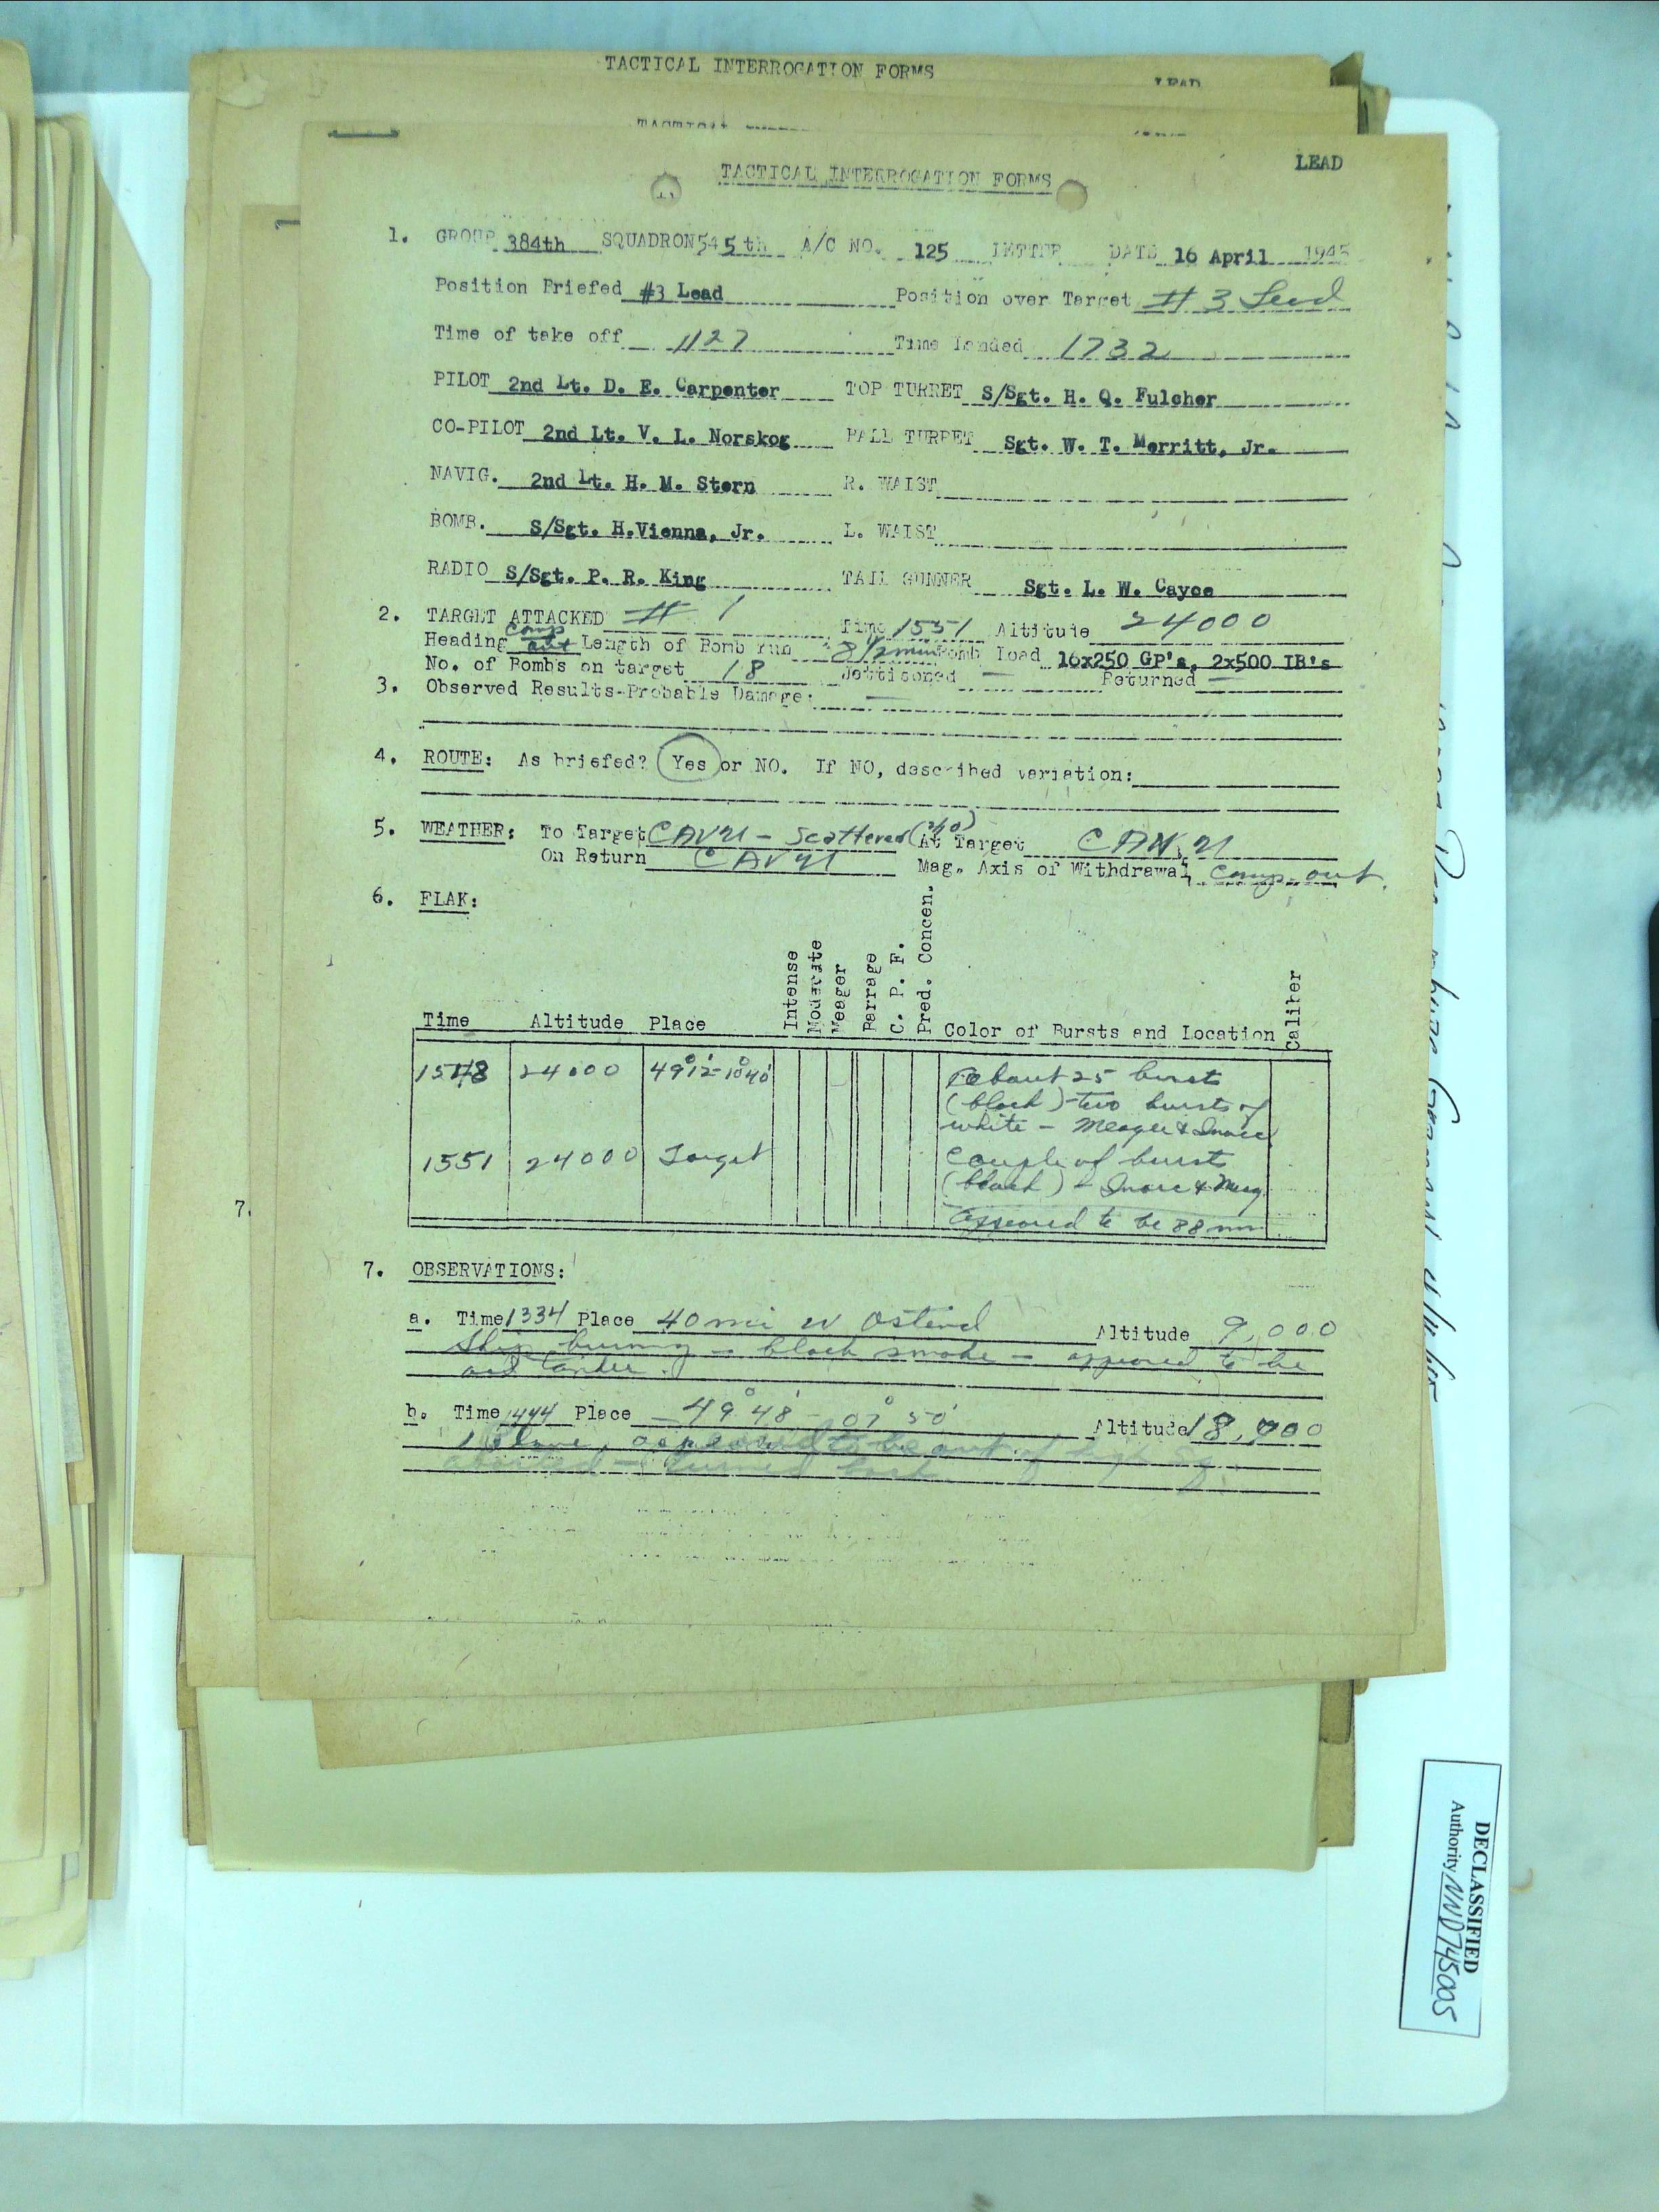 TACTICAL INTERROGATION FORMS
LEAD
TACTICAL INTERROGATION FORMS
1. GROUP 384th SQUADRON 545th A/C NO. 125 LETTER DATE 16 April 1945
Position Briefed #3 Lead Position over Target #3 Lead
Time of take off 1127 Time landed 1732
PILOT 2nd Lt. D. E. Carpenter TOP TURRET S/Sgt. H. Q. Fulcher
CO-PILOT 2nd Lt. V. L. Norskog BALL TURRET Sgt. W. T. Merritt, Jr.
NAVIG. 2nd Lt. H. M. Stern R. WAIST
BOMB. S/Sgt. H.Vienna, Jr. L. WAIST
RADIO S/Sgt. P. R. King TAIL GUNNER Sgt. L. W. Cayce
2. TARGET ATTACKED # 1 Time 1551 Altitude 24000
Heading comp out Length of Bomb run 8 1/2 min Bomb Load 16x250 GP's, 2x500 IB's
No. of Bombs on target 18 Jettisoned — Returned —
3. Observed Results-Probable Damage: —
4. ROUTE: As briefed? Yes or NO. If NO, described variation:
5. WEATHER: To Target CAVU - Scattered (2/10) At Target CAVU
On Return CAVU Mag. Axis of Withdrawal comp out.
6. FLAK:
Time Altitude Place Intense Moderate Meager Barrage C. P. F. Pred. Concen. Color of Bursts and Location Caliber
1548 24000 49°12'-10°40' About 25 bursts
(black) - two bursts of
white - Meager & Inacc
1551 24000 Target Couple of bursts
(black) - Inacc & Meag
Appeared to be 88 mm
7.
7. OBSERVATIONS:
a. Time 1334 Place 40 mi W Ostend Altitude 9,000
Ship burning - black smoke - appeared to be
oil tanker.
b. Time 1444 Place 49°48' - 07°50' Altitude 18,000
1 plane, appeared to be out of high Sq.
aborted - turned back
DECLASSIFIED
Authority NND745005